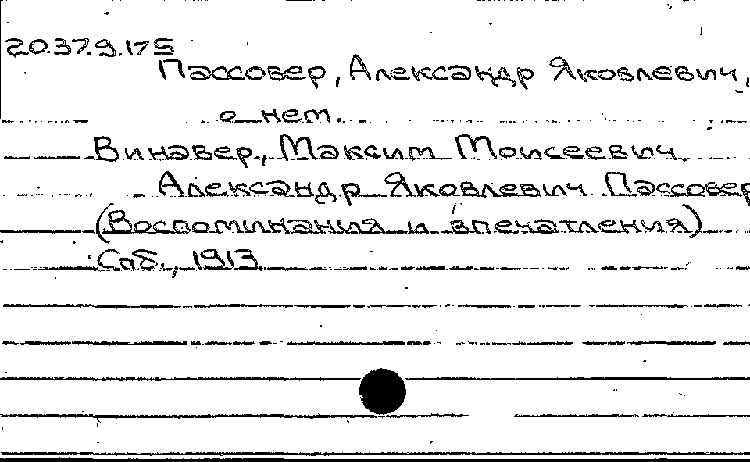 20.37.9.175
Пассовер, Александр Яковлевич,
о нем.
Винавер, Максим Моисеевич
Александр Яковлевич Пассовер
(Воспоминания и впечатления)
Спб., 1913